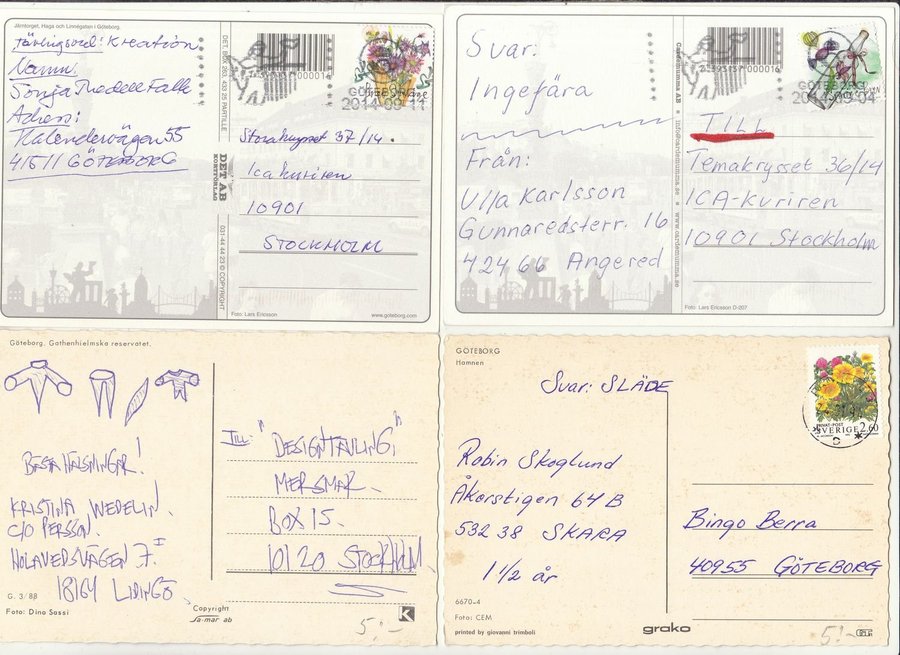 Järntorget, Haga och Linnégatan i Göteborg.
Tävlingsord: Kreation
Namn:
Sonja Thedell Falk
Adress:
Kalendervägen 55
41511 GÖTEBORG
DET. BOX 263, 433 25 PARTILLE
DET AB
KORTFÖRLAG
031-44 44 23 © COPYRIGHT
GÖTEBORG
2014-09-11
Storakrysset 37/14.
Icakuriren
10901
STOCKHOLM
Foto: Lars Ericsson
www.goteborg.com
Svar:
Ingefära
Från:
Ulla Karlsson
Gunnaredsterr. 16
424 66 Angered
Cardemumma AB • info@cardemumma.se • www.cardemumma.se
GÖTEBORG
2014-09-04
TILL
Temakrysset 36/14
ICA-kuriren
10901 Stockholm
Foto: Lars Ericsson O-207
Göteborg. Gathenhielmska reservatet.
BÄSTA HÄLSNINGAR!
KRISTINA WEDELIN.
C/O PERSSON.
HOLAVEDSVÄGEN 7 I
18164 LIDINGÖ
G. 3/88
Foto: Dino Sassi
Copyright
Sa-mar ab
TILL: "DESIGNTÄVLING"
MERSMAK.
BOX 15.
10120 STOCKHOLM
K
5:-
GÖTEBORG
Hamnen
Svar: SLÄDE
Robin Skoglund
Åkerstigen 64 B
532 38 SKARA
1 1/2 år
6670-4
Foto: CEM
printed by giovanni trimboli
grako
PRIVAT-POST
SVERIGE 2.60
Bingo Berra
40955 GÖTEBORG
5:-